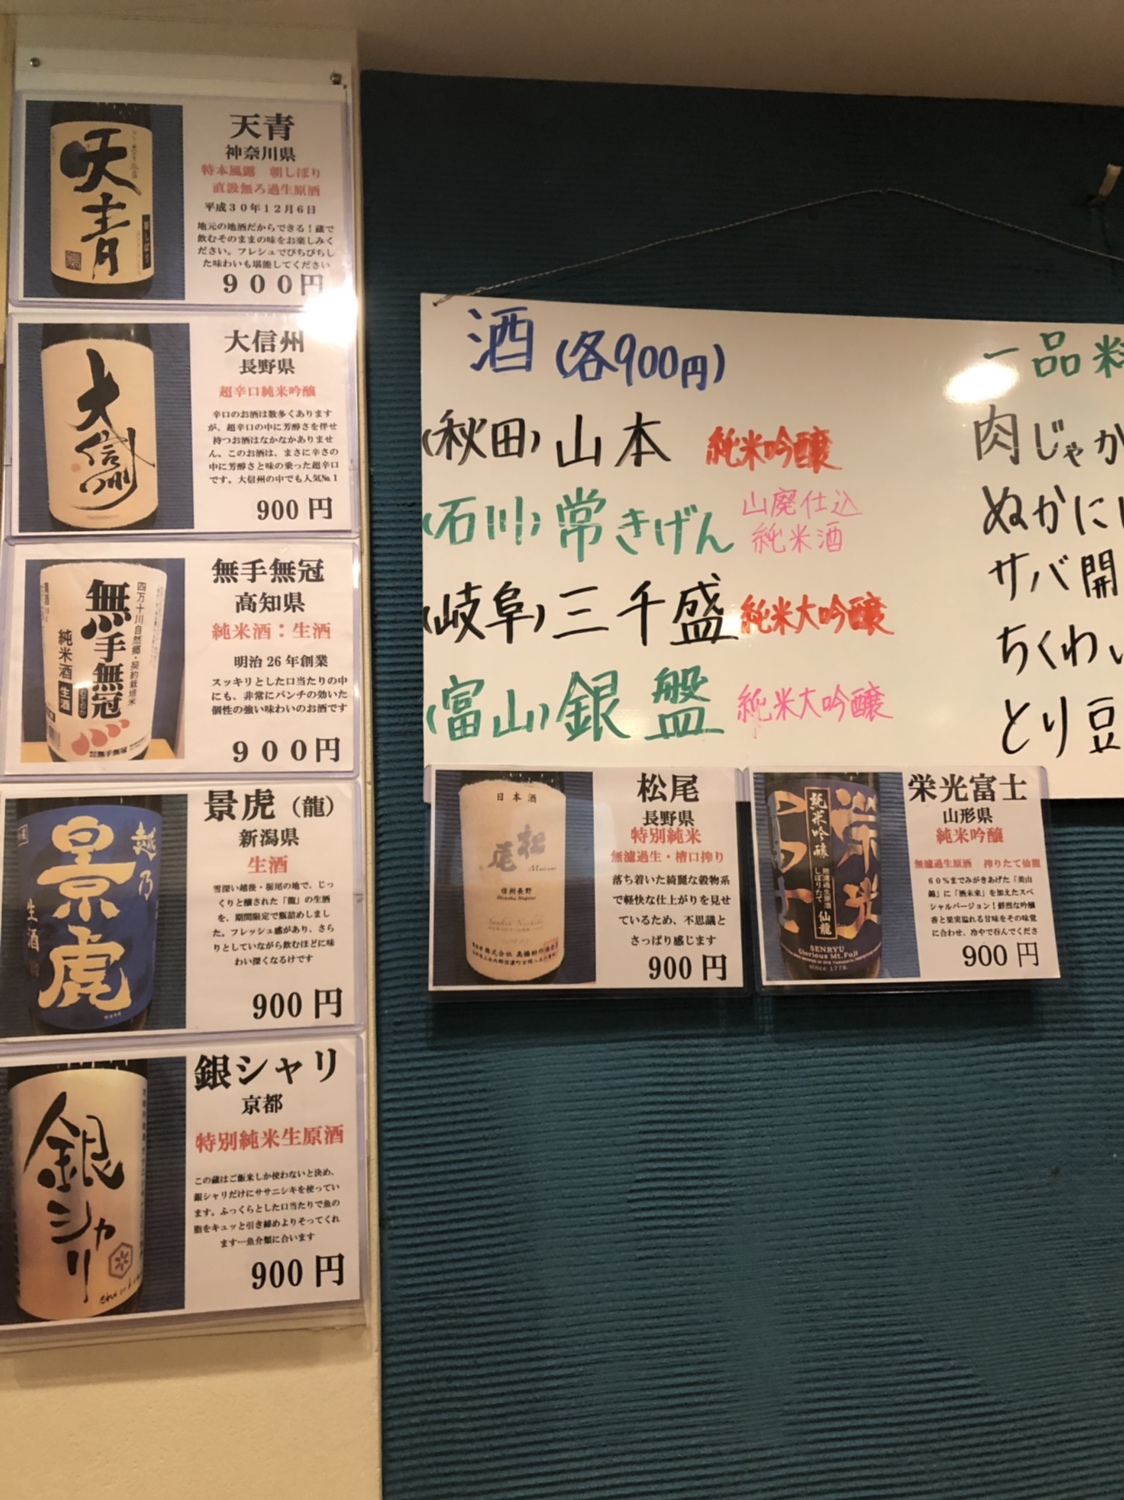 天青
神奈川県
直汲無ろ過生原酒
平成30年12月6日
地元の地酒だからできる！蔵で
飲むそのままの味をお楽しみく
ださい。フレシュでぴちぴちし
た味わいも堪能してください
900円
天青
大信州
長野県
超辛口純米吟醸
辛口のお酒は数多くあります
が、超辛口の中に芳醇さを併せ
持つお酒はなかなかありませ
ん、このお酒は、まさに辛さの
中に芳醇さと味の乗った超辛口
です。大信州の中でも人気№1
900円
大信州
無手無冠
高知県
純米酒：生酒
明治26年創業
スッキリとした口当たりの中
にも、非常にパンチの効いた
個性の強い味わいのお酒です
900円
四万十川自然郷・契約栽培米
無手無冠
純米酒 生酒
景虎（龍）
新潟県
生酒
雪深い越後・栃尾の地で、じっ
くりと醸された「龍」の生酒
を、期間限定で瓶詰めしまし
た。フレッシュ感があり、さら
りとしていながら飲むほどに味
わい深くなるけです
900円
越乃
景虎
生酒
銀シャリ
京都
特別純米生原酒
この蔵はご飯米しか使わないと決め、
銀シャリだけにササニシキを使ってい
ます。ふっくらとした口当たりで魚の
脂をキュッと引き締めよりそってくれ
ます…魚介類に合います
900円
銀シャリ
酒（各900円）
（秋田）山本 純米吟醸
（石川）常きげん 山廃仕込
純米酒
（岐阜）三千盛 純米大吟醸
（富山）銀盤 純米大吟醸
一品料
肉じゃか
ぬかに
サバ開
ちくわ
とり豆
松尾
長野県
特別純米
無濾過生・槽口搾り
落ち着いた綺麗な穀物系
で軽快な仕上がりを見せ
ているため、不思議と
さっぱり感じます
900円
日本酒
松尾
信州長野
栄光富士
山形県
純米吟醸
無濾過生原酒 搾りたて仙龍
60％までみがきあげた「美山
錦」に「酒未来」を加えたスペ
シャルバージョン！鮮烈な吟醸
香と果実溢れる甘味をその味覚
に合わせ、冷やで呑んでくださ
900円
純米吟醸
無濾過生原酒
しぼりたて
仙龍
SENRYU
Glorious Mt.Fuji
SINCE 1778.